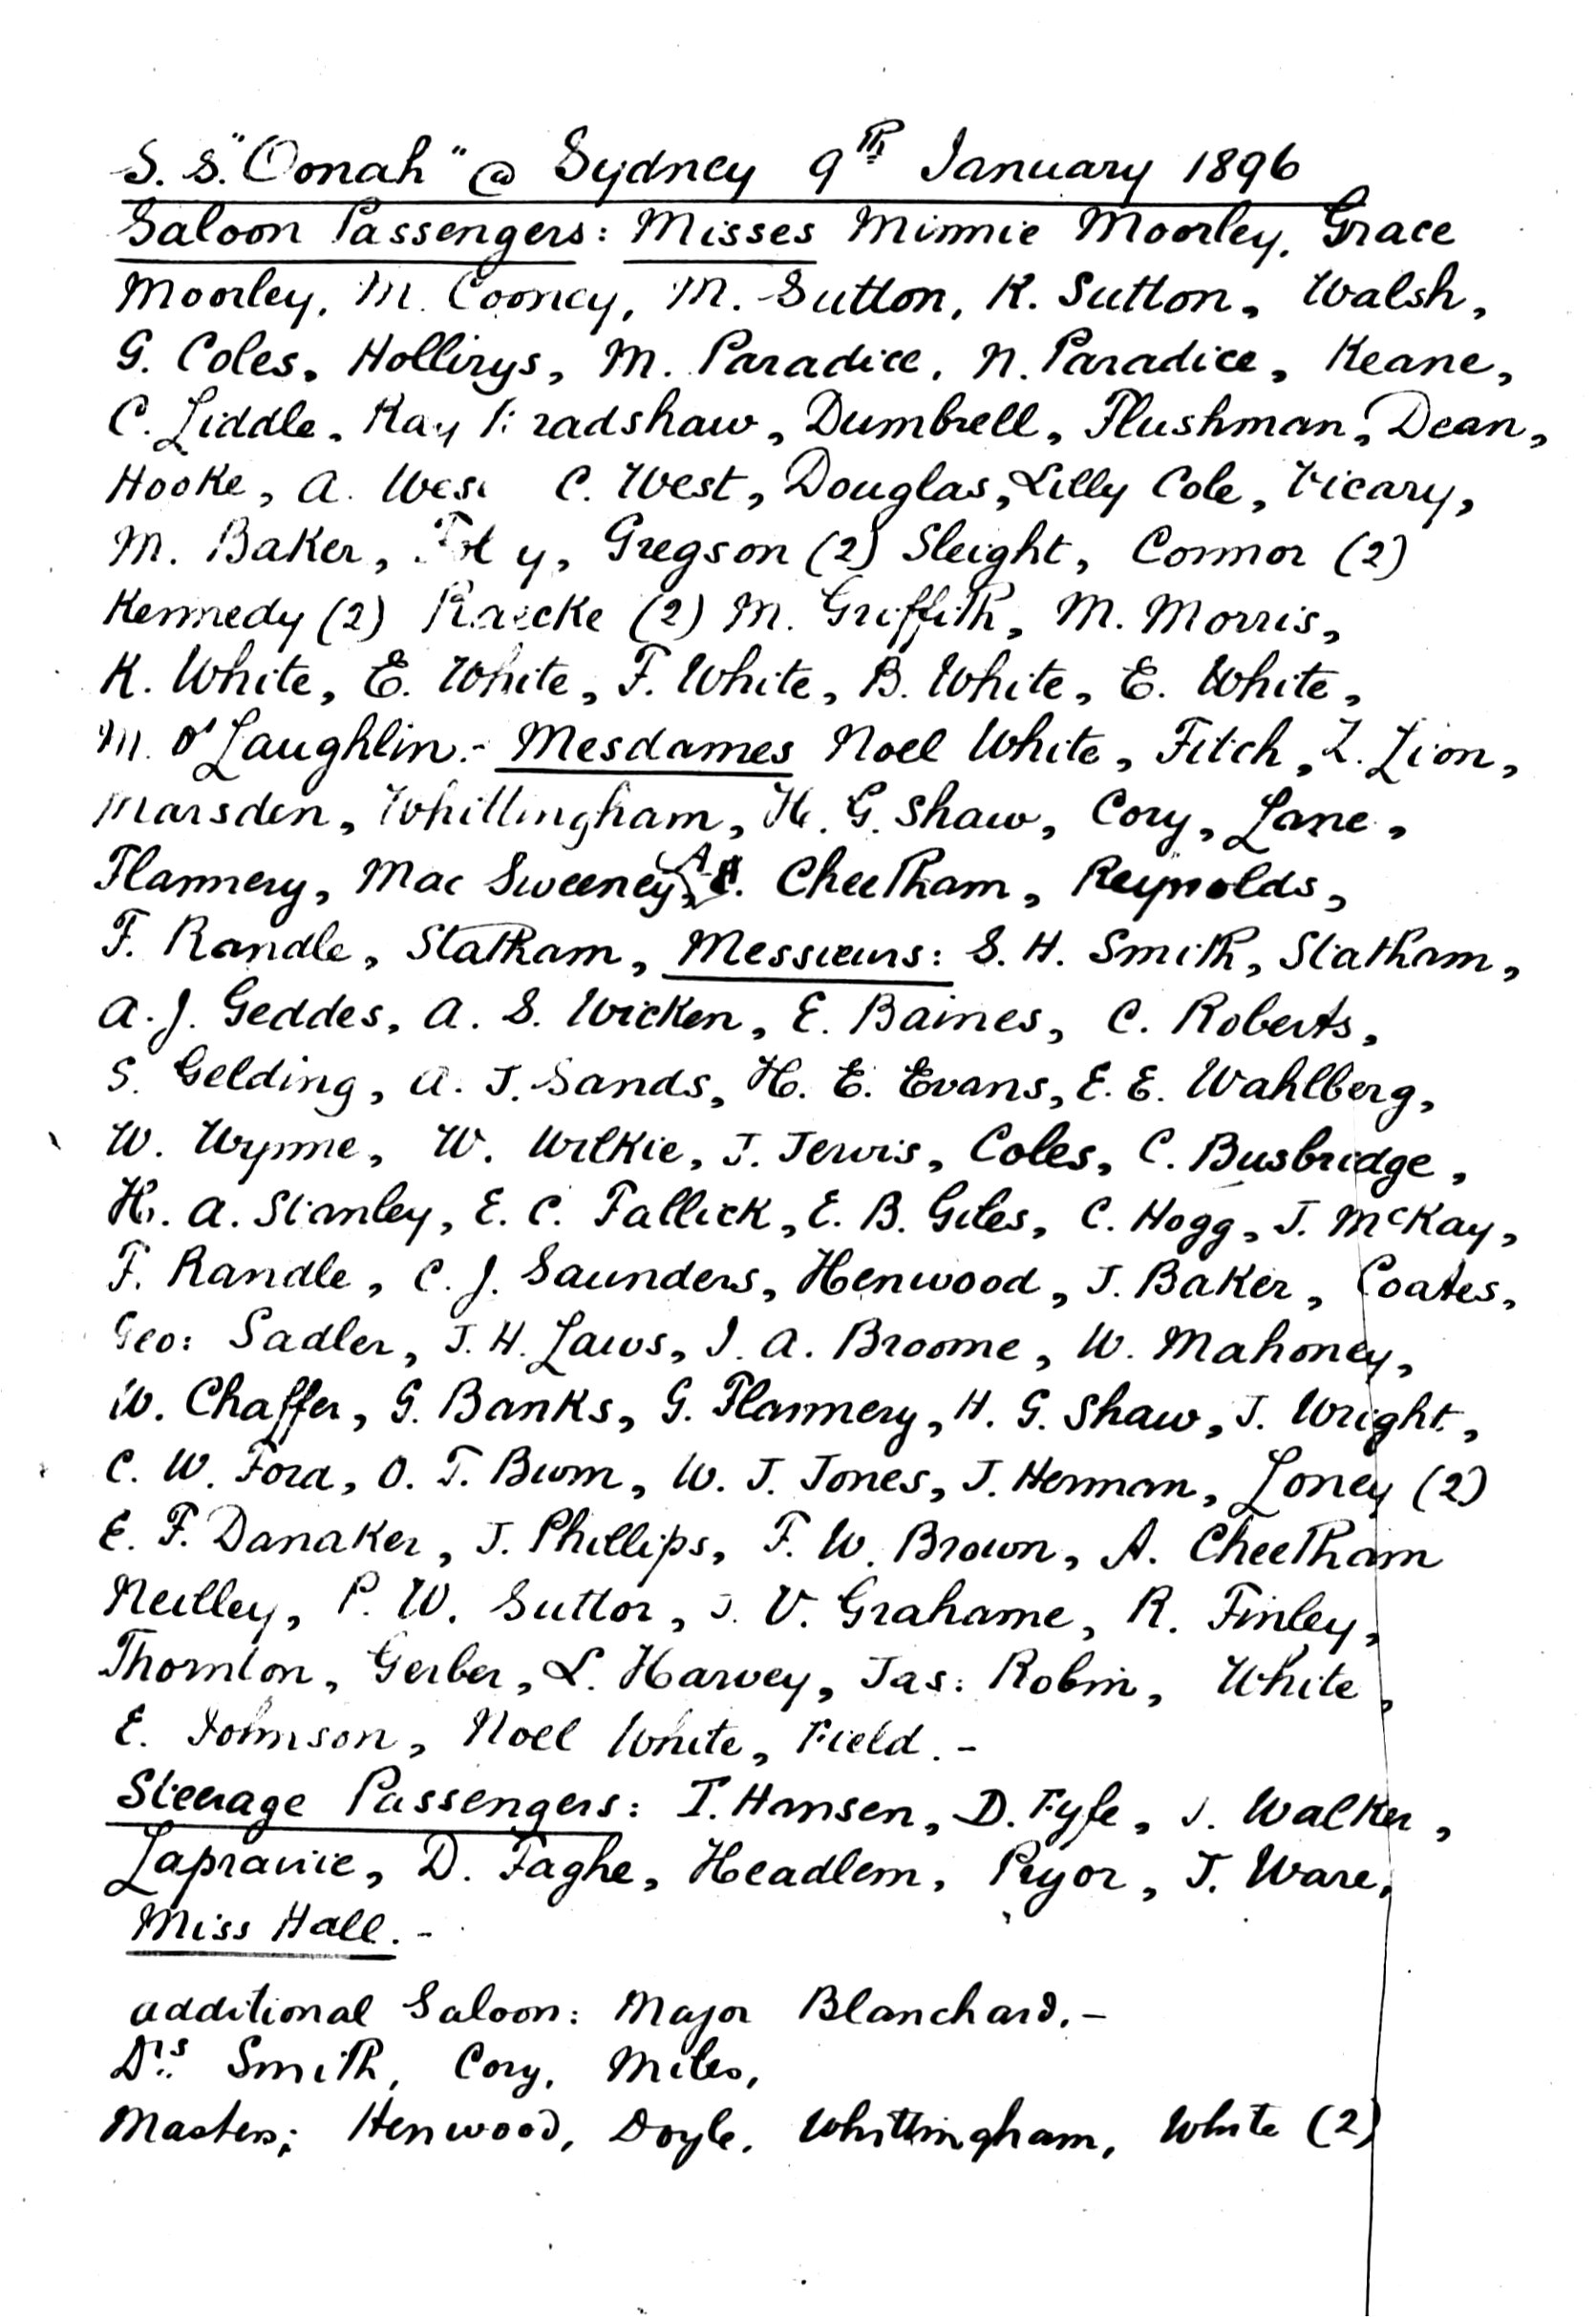 S. S. "Oonah" @ Sydney 9th January 1896
Saloon Passengers: Misses Minnie Moorley, Grace
Moorley, M. Cooney, M. Sutton, K. Sutton, Walsh,
G. Coles, Hollirys, M. Paradice, N. Paradice, Keane,
C. Liddle, Kay Bradshaw, Dumbrell, Flushman, Dean,
Hooke, A. West C. West, Douglas, Lilly Cole, Vicary,
M. Baker, Gregson (2) Sleight, Connor (2)
Kennedy (2) (2) M. Griffith, M. Morris,
K. White, E. White, F. White, B. White, E. White,
M. O'Laughlin.- Mesdames Noel White, Fitch, L. Lion,
Marsden, Whittingham, H. G. Shaw, Cory, Lane,
Flannery, Mac Sweeney, A. Cheetham, Reynolds,
F. Randle, Statham, Messieurs: S. H. Smith, Statham,
A. J. Geddes, A. S. Wicken, E. Baines, C. Roberts,
S. Gelding, A. J. Sands, H. E. Evans, E. E. Wahlberg,
W. Wynne, W. Wilkie, J. Jervis, Coles, C. Busbridge,
H. A. Stanley, E. C. Fallick, E. B. Giles, C. Hogg, J. McKay,
F. Randle, C. J. Saunders, Henwood, J. Baker, Coates,
Geo: Sadler, J. H. Laws, J. A. Broome, W. Mahoney,
W. Chaffer, G. Banks, G. Flannery, H. G. Shaw, J. Wright,
C. W. Ford, O. T. Bwm, W. J. Jones, J. Herman, Loney (2)
E. F. Danaker, J. Phillips, F. W. Brown, A. Cheetham
Neilley, P. W. Suttor, J. V. Grahame, R. Finley,
Thornton, Gerber, L. Harvey, Jas: Robin, White,
E. Johnson, Noel White, Field.-
Steerage Passengers: T. Hansen, D. Fyfe, J. Walker,
Lapravie, D. Faghe, Headlem, Pryor, J. Ware,
Miss Hall.-
additional Saloon: Major Blanchard.-
Drs Smith, Cory, Miles,
Masters; Henwood, Doyle, Whittingham, White (2)